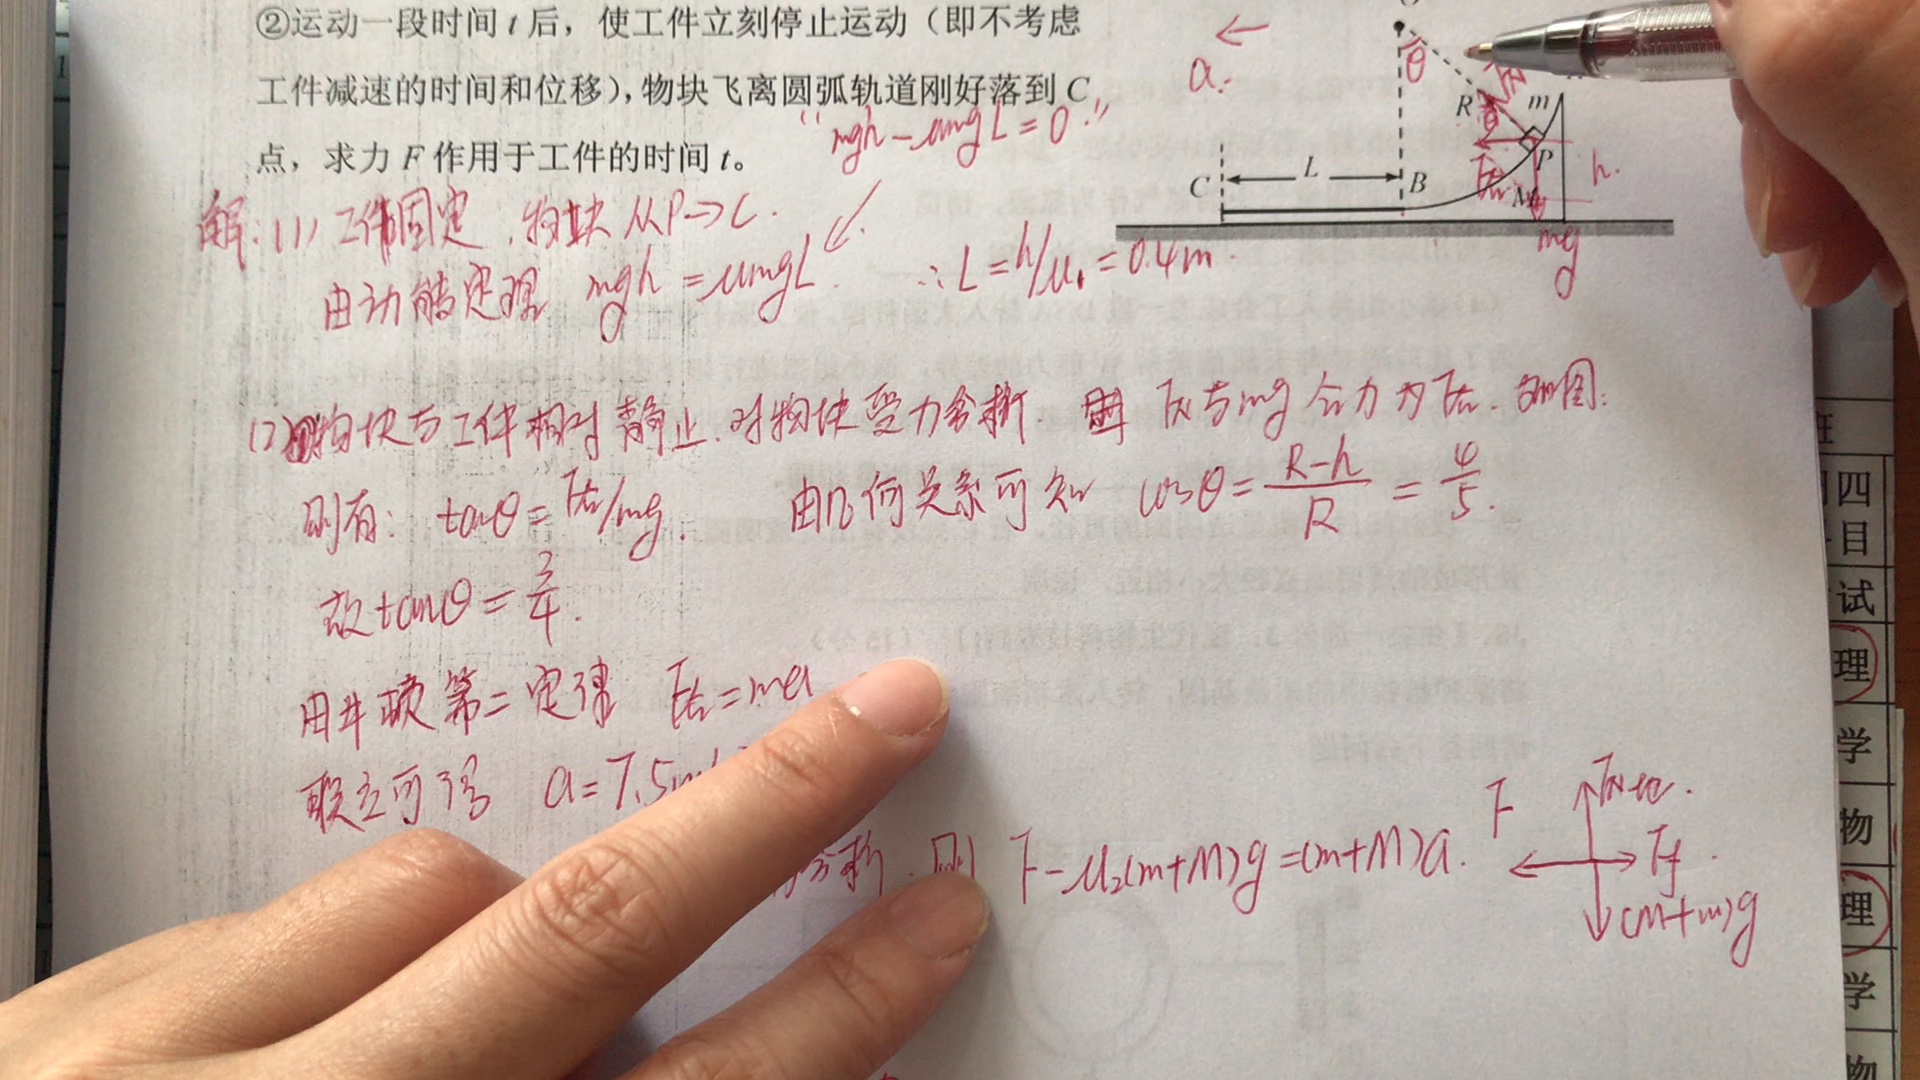 ②运动一段时间 t 后，使工件立刻停止运动（即不考虑
工件减速的时间和位移），物块飞离圆弧轨道刚好落到 C
点，求力 F 作用于工件的时间 t。
“mgh－μmgL=0.”
a.
θ
R
m
P
h.
M
mg
C
L
B
解:(1) 工件固定，物块从P→C.
由动能定理 mgh=μmgL. ∴L=h/μ₁=0.4m.
(2)物块与工件相对静止.对物块受力分析. FN与mg合力为F合. 如图:
则有: tanθ=F合/mg. 由几何关系可知 cosθ=(R-h)/R=4/5.
故tanθ=3/4.
由牛顿第二定律 F合=ma
联立可得 a=7.5m
分析.则 F-μ₂(m+M)g=(m+M)a.
F
FN地.
Ff.
(M+m)g
四
目
试
理
学
物
理
学
物